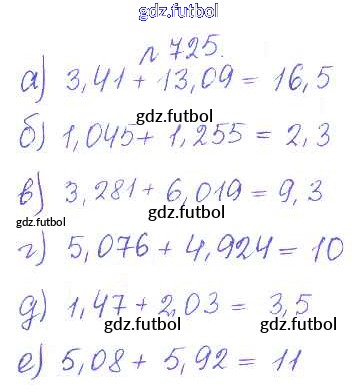 gdz.futbol
№ 725.
а) 3,41 + 13,09 = 16,5
gdz.futbol
б) 1,045 + 1,255 = 2,3
gdz.futbol
в) 3,281 + 6,019 = 9,3
gdz.futbol
gdz.futbol
г) 5,076 + 4,924 = 10
gdz.futbol
д) 1,47 + 2,03 = 3,5
gdz.futbol
gdz.futbol
е) 5,08 + 5,92 = 11
gdz.futbol